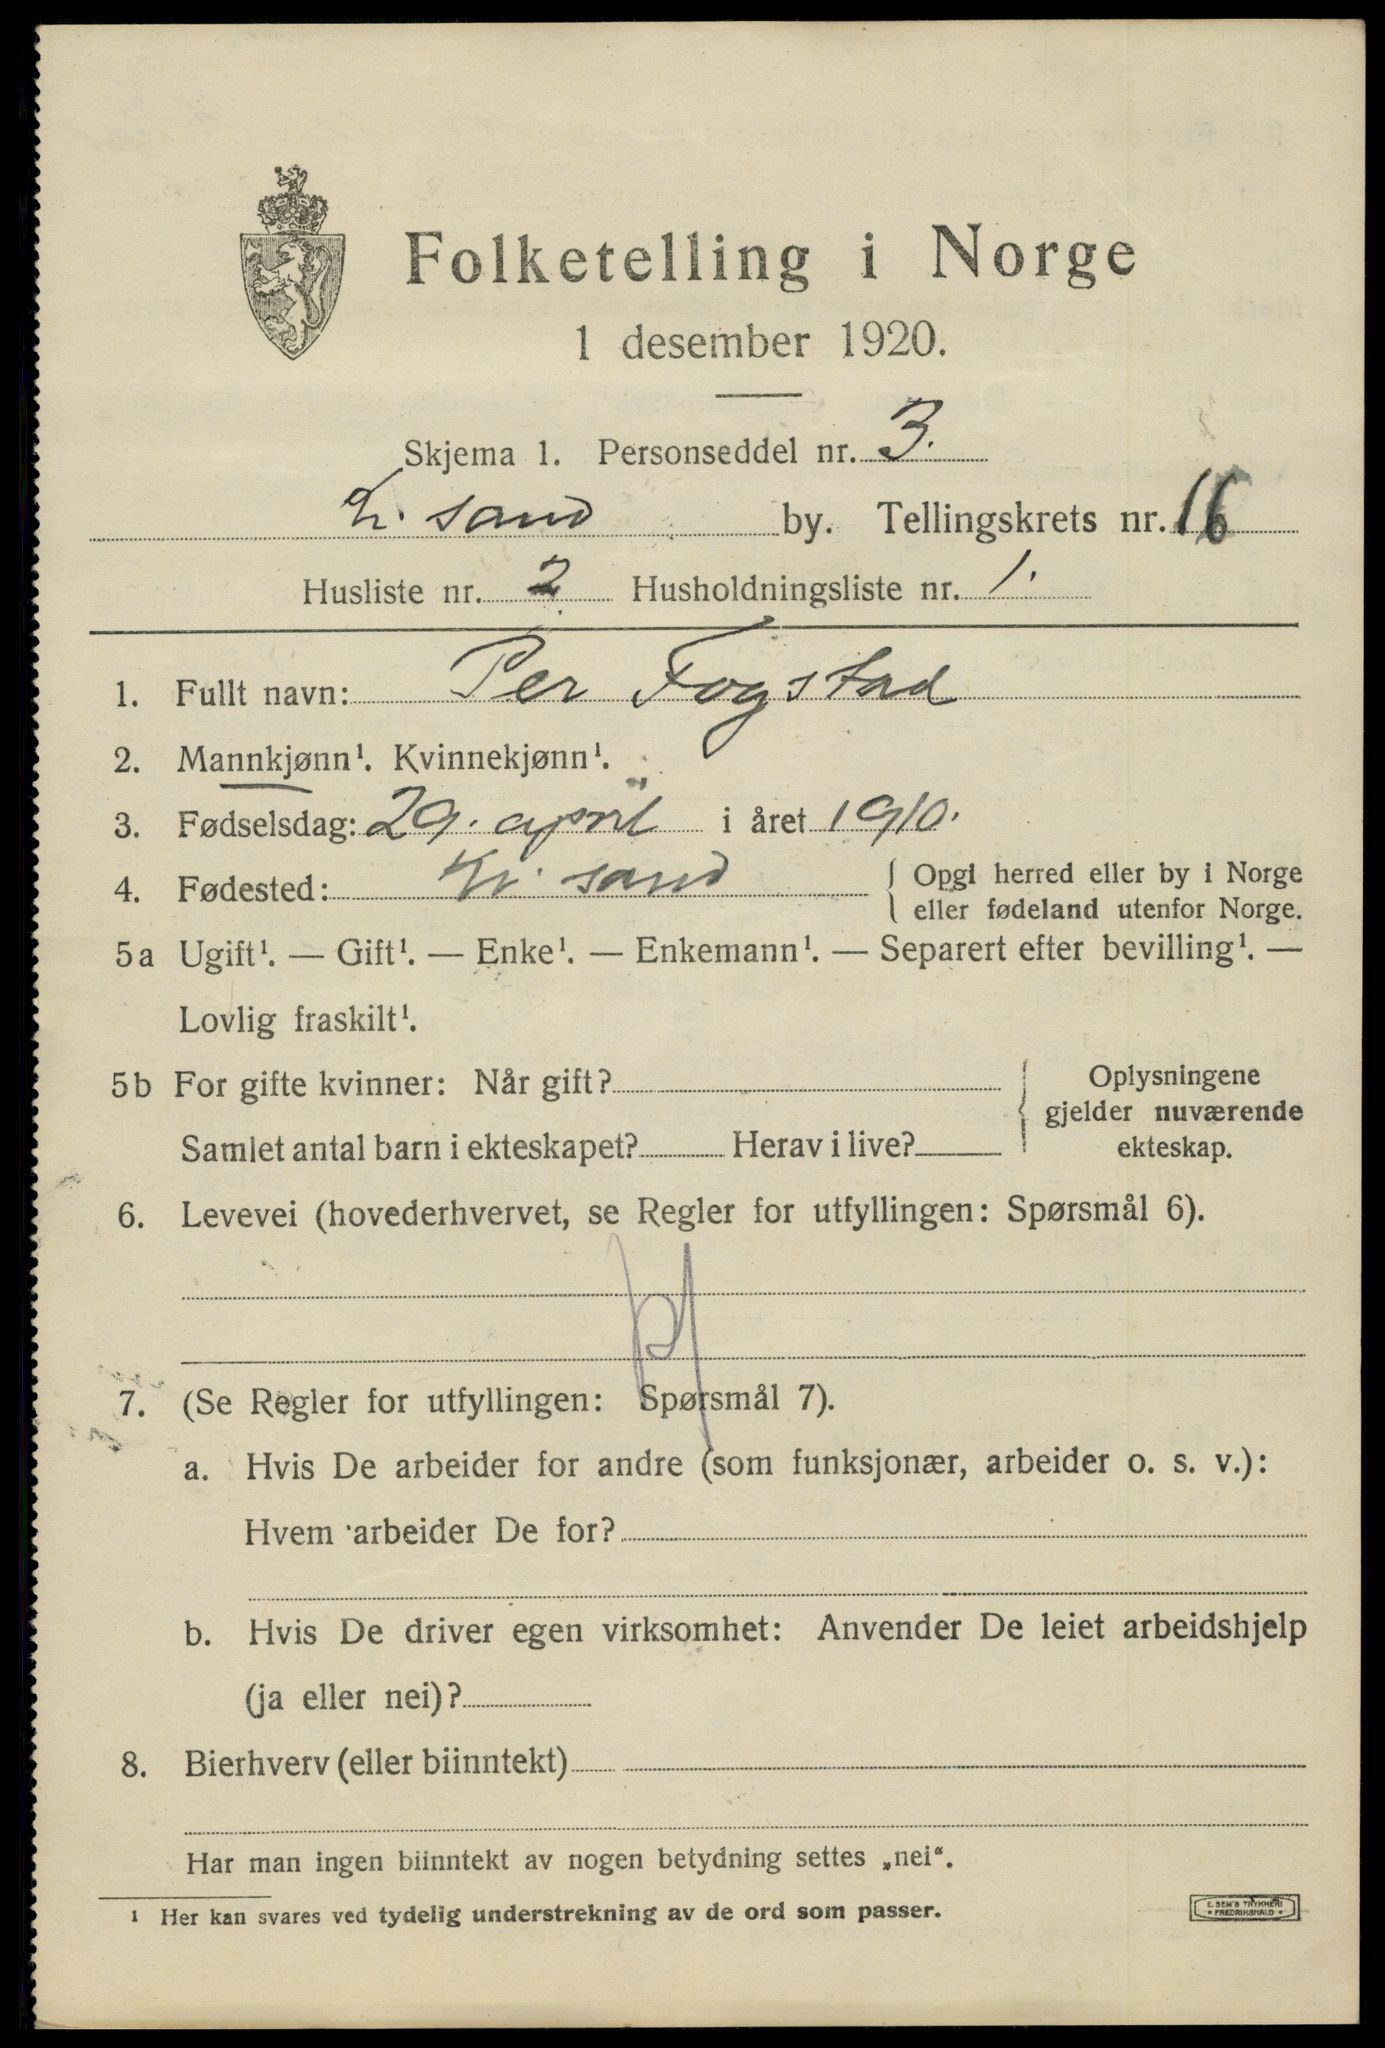 Folketelling i Norge
1 desember 1920.
Skjema 1. Personseddel nr. 3.
Kr. sand by. Tellingskrets nr. 16
Husliste nr. 2 Husholdningsliste nr. 1.
1. Fullt navn: Per Fogstad
2. Mannkjønn¹. Kvinnekjønn¹.
3. Fødselsdag: 29. april i året 1910.
4. Fødested: Kr. sand { Opgi herred eller by i Norge
eller fødeland utenfor Norge.
5a Ugift¹. — Gift¹. — Enke¹. — Enkemann¹. — Separert efter bevilling¹. —
Lovlig fraskilt¹.
5b For gifte kvinner: Når gift? Oplysningene
gjelder nuværende
Samlet antal barn i ekteskapet? Herav i live? ekteskap.
6. Levevei (hovederhvervet, se Regler for utfyllingen: Spørsmål 6).
7. (Se Regler for utfyllingen: Spørsmål 7).
a. Hvis De arbeider for andre (som funksjonær, arbeider o. s. v.):
Hvem arbeider De for?
b. Hvis De driver egen virksomhet: Anvender De leiet arbeidshjelp
(ja eller nei)?
8. Bierhverv (eller biinntekt)
Har man ingen biinntekt av nogen betydning settes „nei“.
¹ Her kan svares ved tydelig understrekning av de ord som passer.
E. SEM'S TRYKKERI
* FREDRIKSHALD *